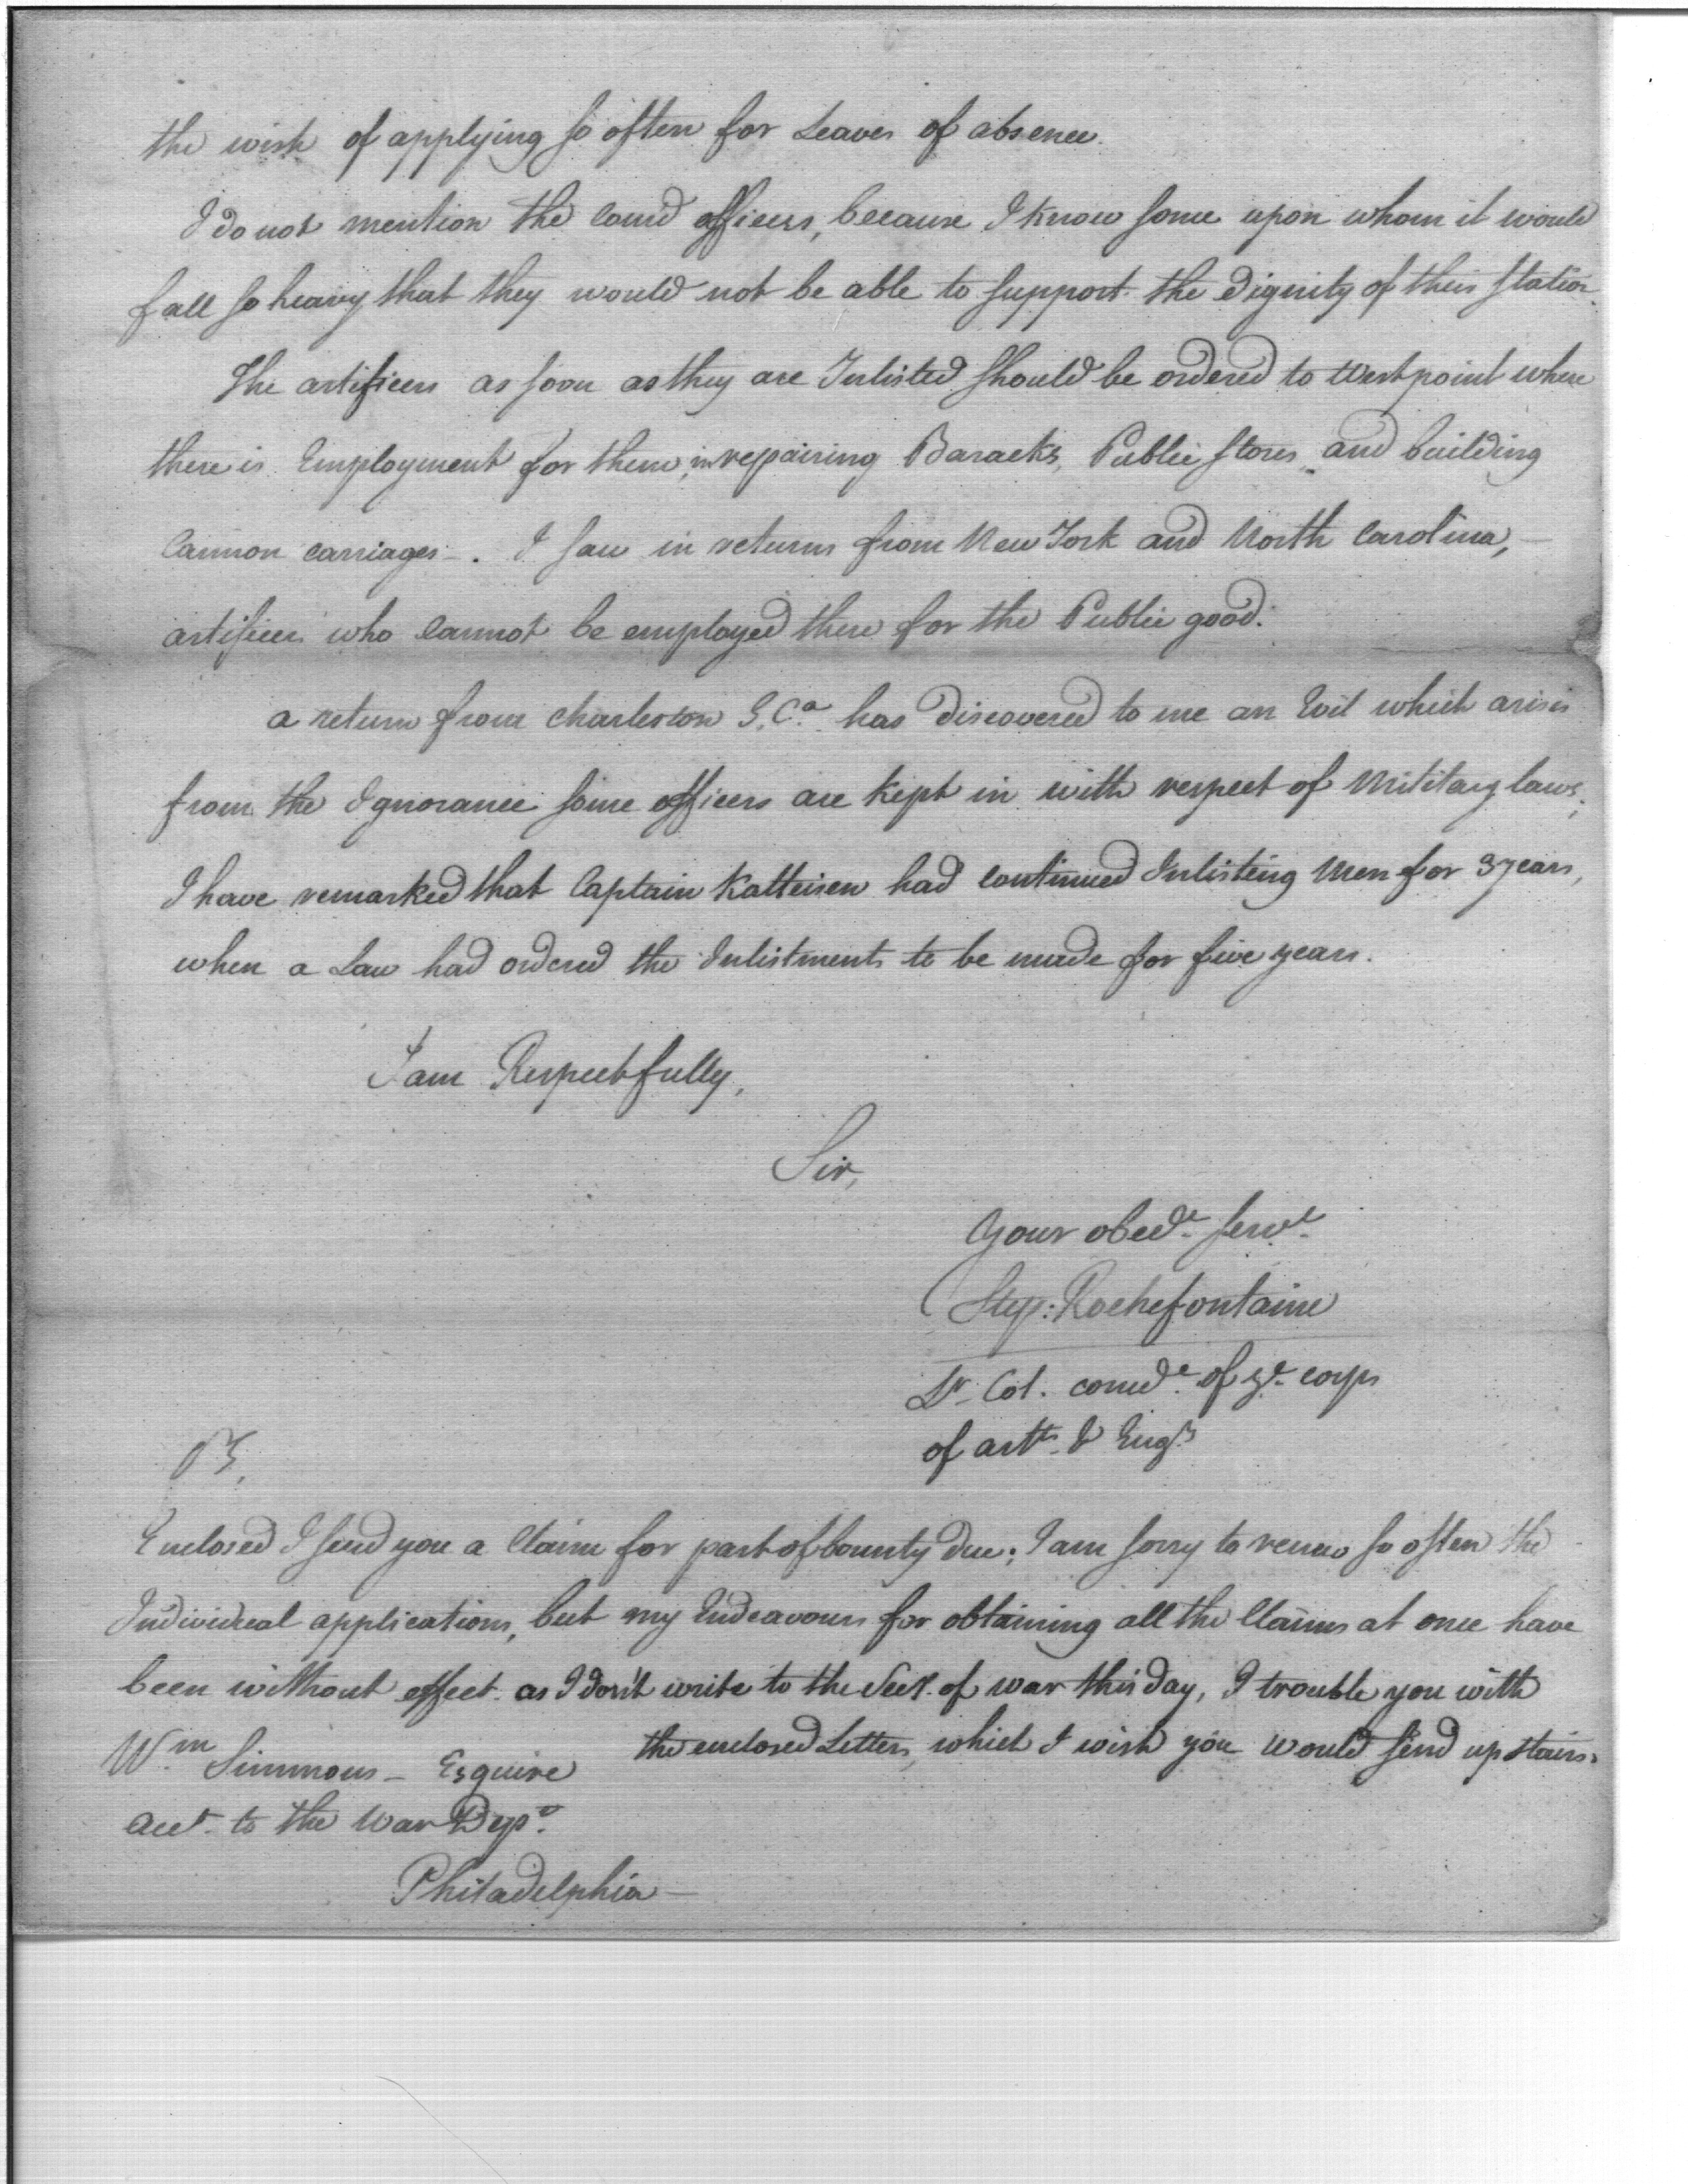 the wish of applying so often for Leaves of absence.
I do not mention the comd officers, because I know some upon whom it would
fall so heavy that they would not be able to support the dignity of their station.
The artificers as soon as they are Inlisted should be ordered to West point where
there is Employment for them, in repairing Baracks, Public stores, and building
Cannon carriages -. I saw in returns from New York and North Carolina, -
artificers who cannot be employed there for the Public good.
a return from Charleston S. Ca. has discovered to me an Evil which arises
from the Ignorance some officers are kept in with respect of Military laws;
I have remarked that Captain Kalteisen had continued Inlisting Men for 3 years,
when a Law had ordered the Inlistments to be made for five years.
I am Respectfully,
Sir,
Your obedt servt
Step: Rochefontaine
Lt Col. comdt of ye corps
of arts & Engrs
PS,
Enclosed I send you a Claim for part of bounty due; I am sorry to renew so often the
Individual applications, but my Endeavours for obtaining all the Claims at once have
been without effect. as I don't write to the Secy. of war this day, I trouble you with
the enclosed Letters, which I wish you would send up stairs.
Wm Simmons - Esquire
Acct to the War Dept.
Philadelphia -